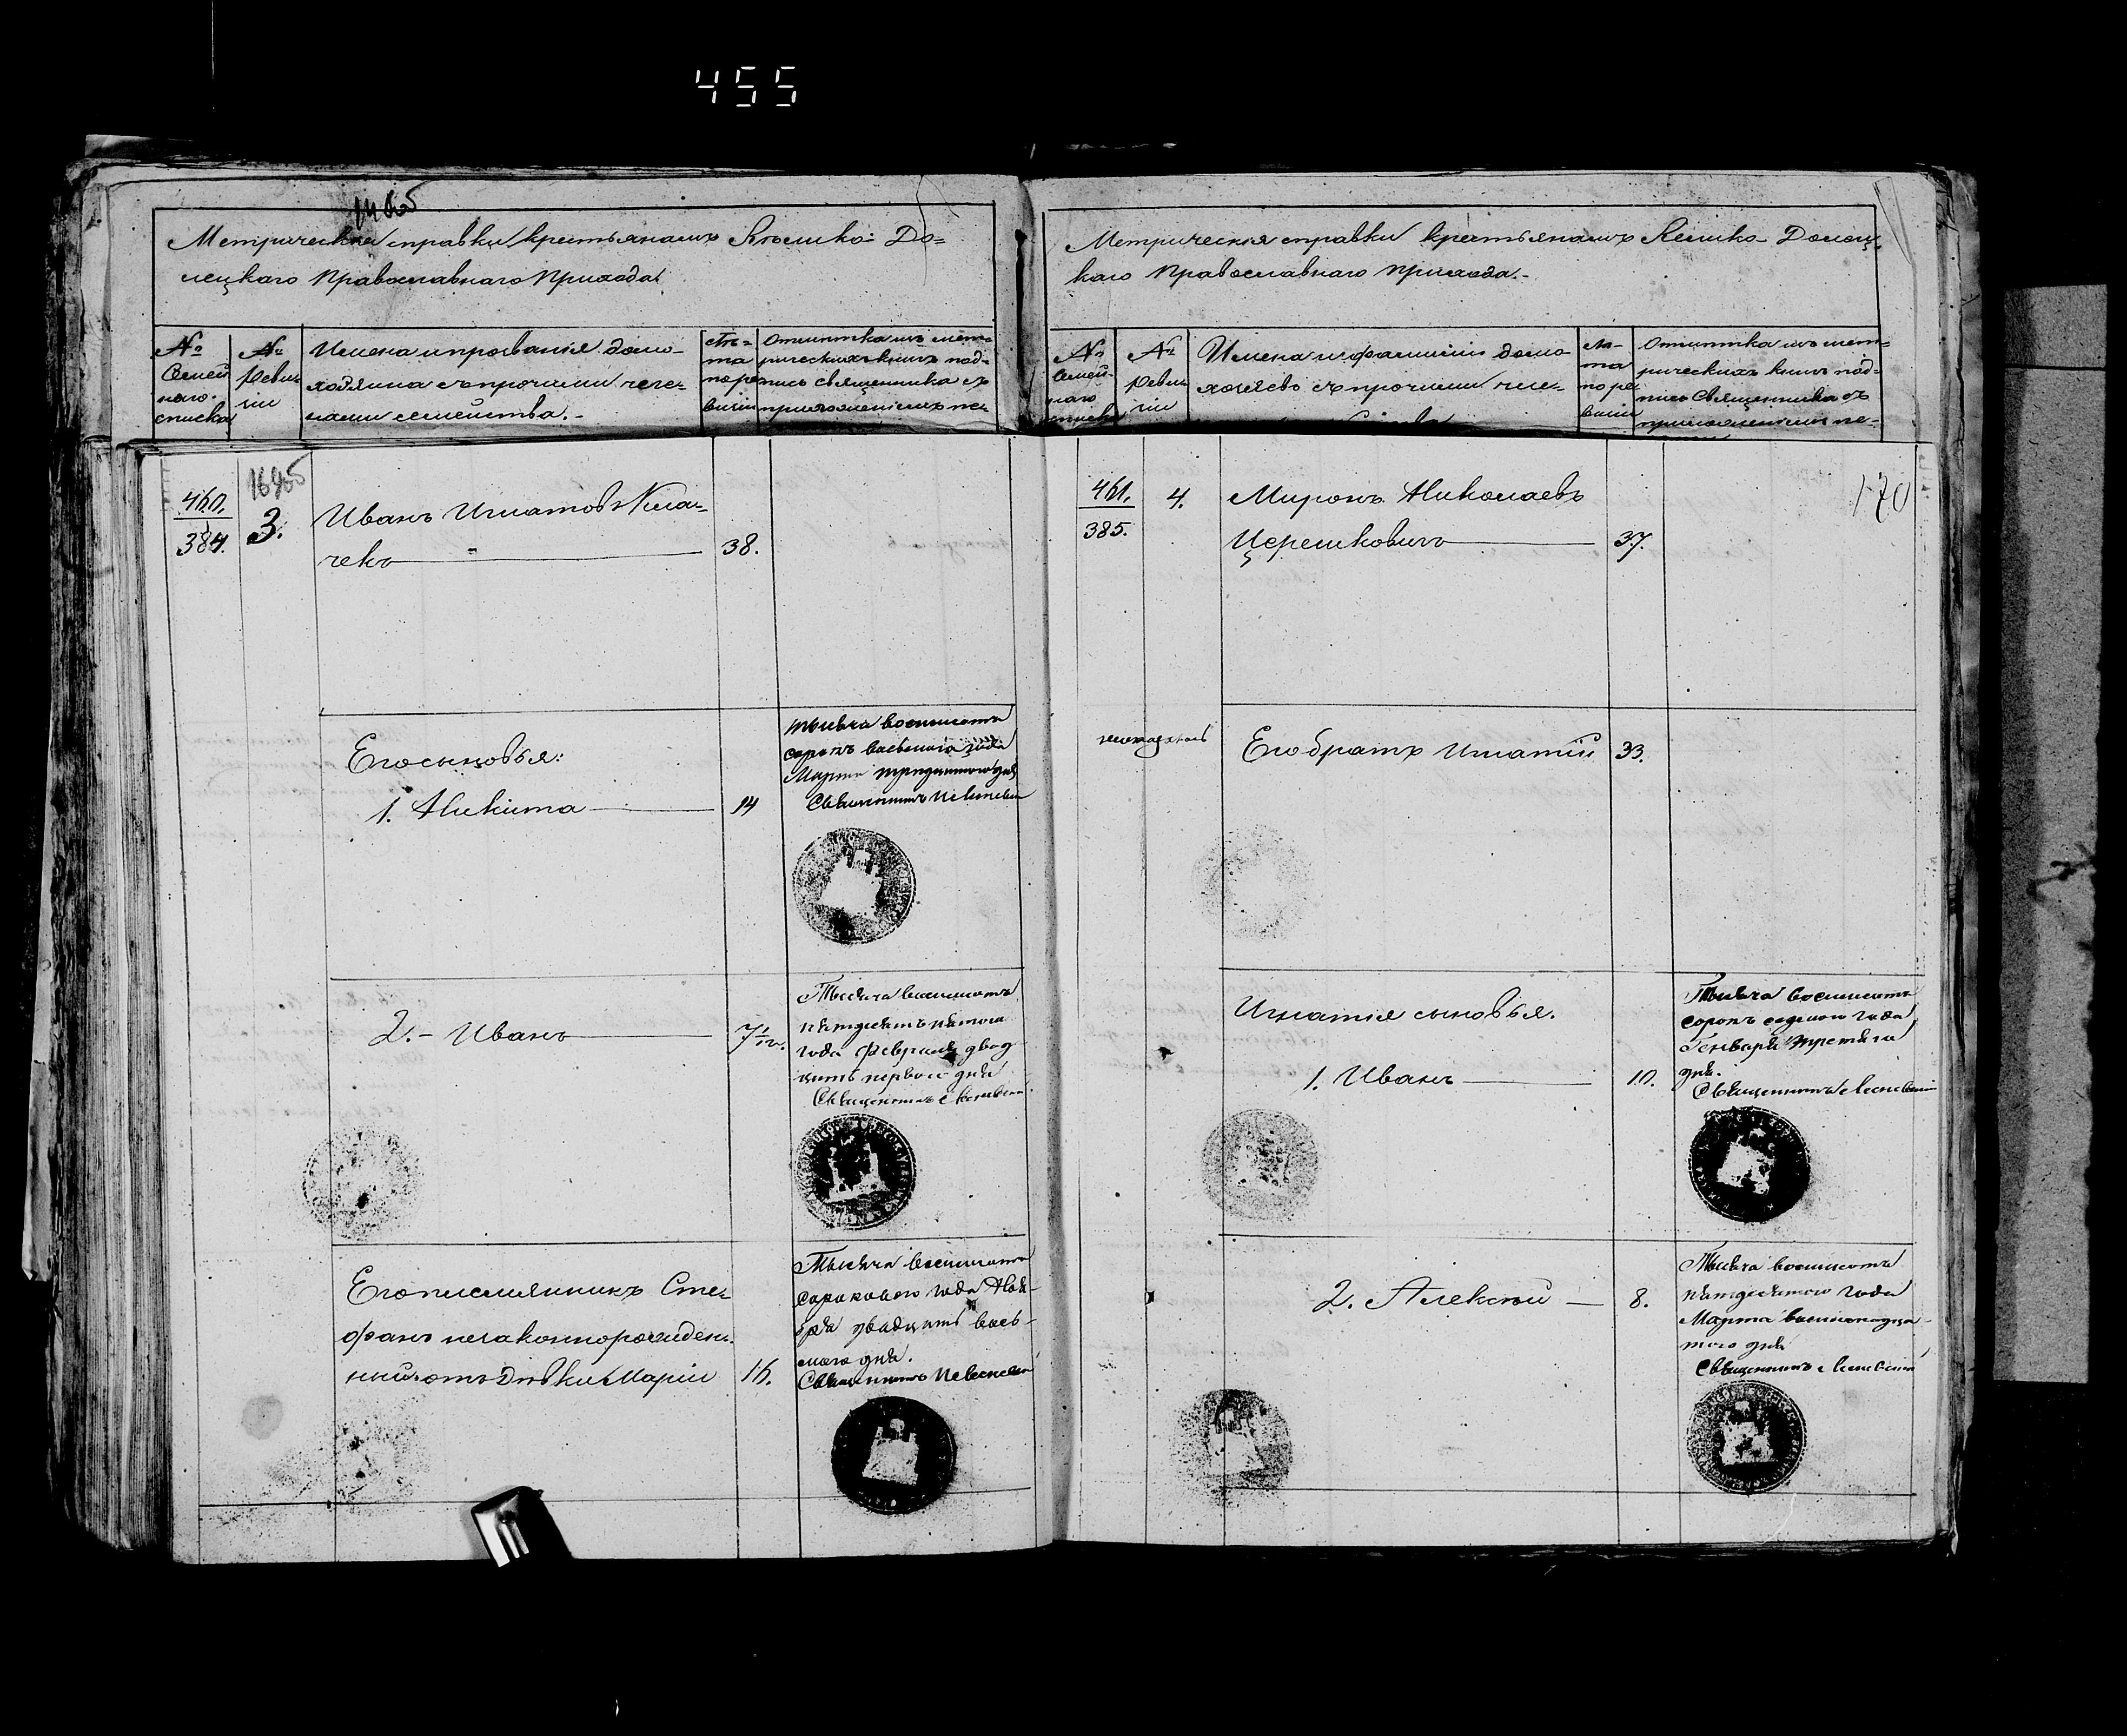 455
Метрическія справки крестьянамъ Велико-До=
лецкаго Православнаго Прихода
№ Семей наго списка
№ Реви зіи
Имена и прозванія домо-
хозяина съ прочими чле-
нами семейства.-
Лѣ= та по ре визіи
Отмѣтка изъ мет=
рическихъ книгъ под=
пись священника съ
приложеніемъ пе=
460.
384.
3.
Иванъ Игнатовъ
чекъ
38.
Его сыновья:
1. Никита
14
тысяча восемьсотъ
сорокъ восьмого года
Марта тридцатаго дня
Священникъ
2.- Иванъ
Тысяча восемьсотъ
пятдесятъ пятого
года Февраля двад
цать первого дня
Священникъ
Его племянникъ Сте-
фанъ незаконнорожден-
ный отъ дѣвки Маріи
16.
Тысяча восемьсотъ
сорокового года Ноя-
бря двадцать вось-
мого дня.
Священникъ
Метрическія справки крестьянамъ Велико-Долец-
каго Православнаго прихода.-
№ Семей- наго списка
№ Реви зіи
Имена и фамиліи домо
хозяевъ съ прочими чле-
Лѣ- та по ре визіи
Отмѣтка изъ мет=
рическихъ книгъ под=
пись Священника съ
приложеніемъ пе-
170
461.
385.
4.
Миронъ Николаевъ
Церешковичъ
37.
Его братъ Игнатій
33.
Игнатія сыновья.
1. Иванъ
10.
Тысяча восемьсотъ
сорокъ седьмого года
Генваря третьяго
дня.
Священникъ
2. Алексѣй
8.
Тысяча восемьсотъ
пятдесятого года
Марта восемнадца-
того дня
Священникъ